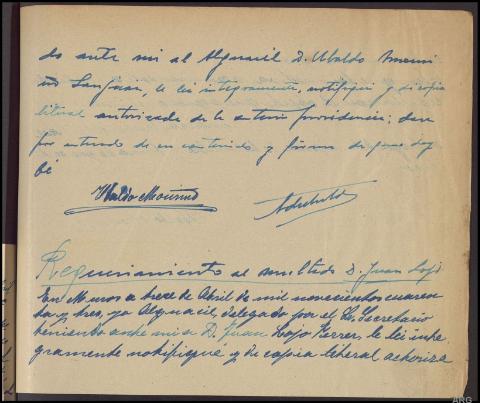 do ante mi al Alguacil D. Ubaldo Mouri
ño SanJuan, le lei integramente, notifiqué y di copia
literal autorizada de la anterior providencia; dase
por enterado de su contenido y firma de que doy
fé
Ubaldo Mouriño
Requerimiento al multado D. Juan Lojo
En Muros a trece de Abril de mil novecientos cuaren
ta y tres, yo Alguacil, delegado por el Sr. Secretario
teniendo ante mi a D. Juan Lojo Ferrer, le lei inte
gramente notifiqué y di copia literal autoriza
ARG